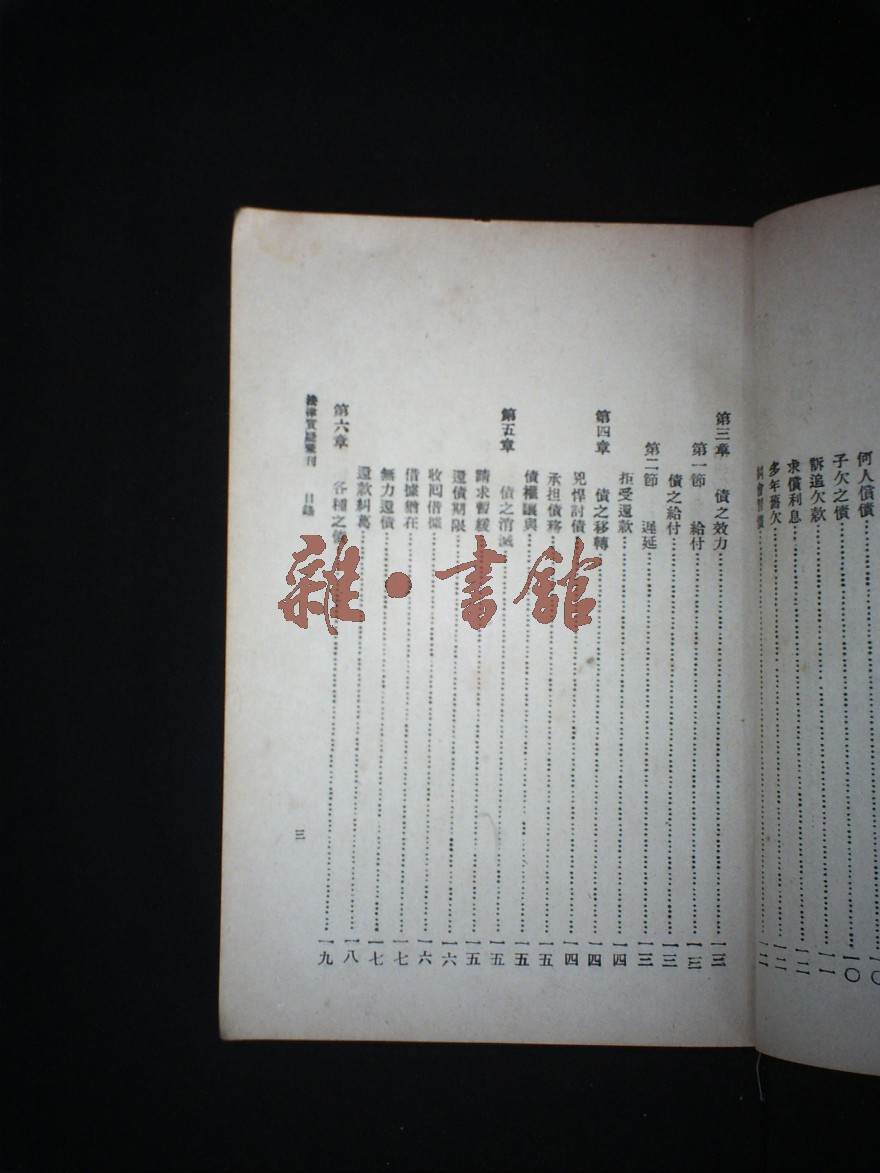 何人償債……一〇
子欠之債……一〇
訴追欠款……一一
求償利息……一二
多年舊欠……一二
……一二
第三章 債之效力……一三
第一節 給付……一三
債之給付……一三
第二節 遲延……一三
拒受還款……一四
第四章 債之移轉……一四
兇悍討債……一四
承担債務……一五
債權讓與……一五
第五章 債之消滅……一五
請求暫緩……一五
還債期限……一六
收回借據……一六
借據猶在……一七
無力還債……一七
還款糾葛……一八
第六章 各種之債……一九
法律質疑彙刊 目錄
三
雜·書館